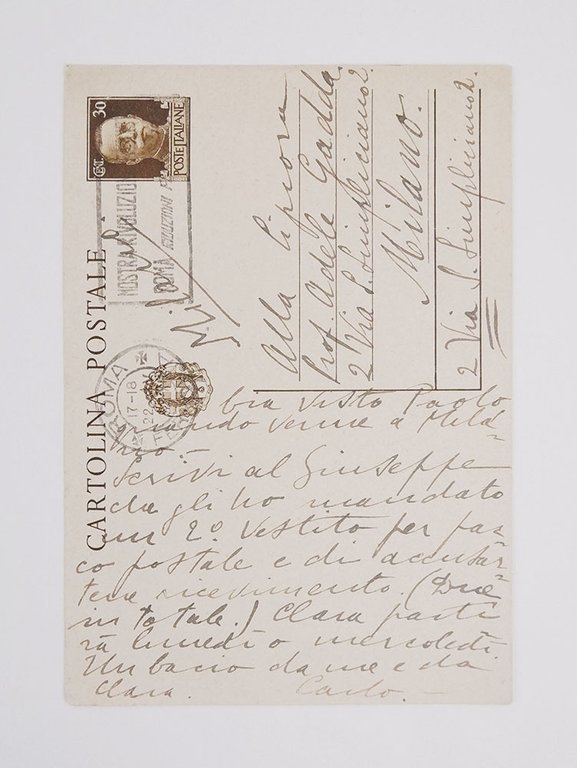 CENT. 30
POSTE ITALIANE
MOSTRA RIVOLUZIO
ROMA
CARTOLINA POSTALE
ROMA
17-18
22
Alla Signora
Prof. Adele Gadda
2 Via S. Simpliciano 2.
Milano.
2 Via S. Simpliciano 2.
visto Paolo
quando venne a Milà-
no
Scrivi al Giuseppe
che gli ho mandato
un 2º vestito per pac-
co postale e di accusar-
tene ricevimento. (Due
in totale.) Clara parti-
rà lunedì o mercoledì
Un bacio da me e da
Clara. Carlo.